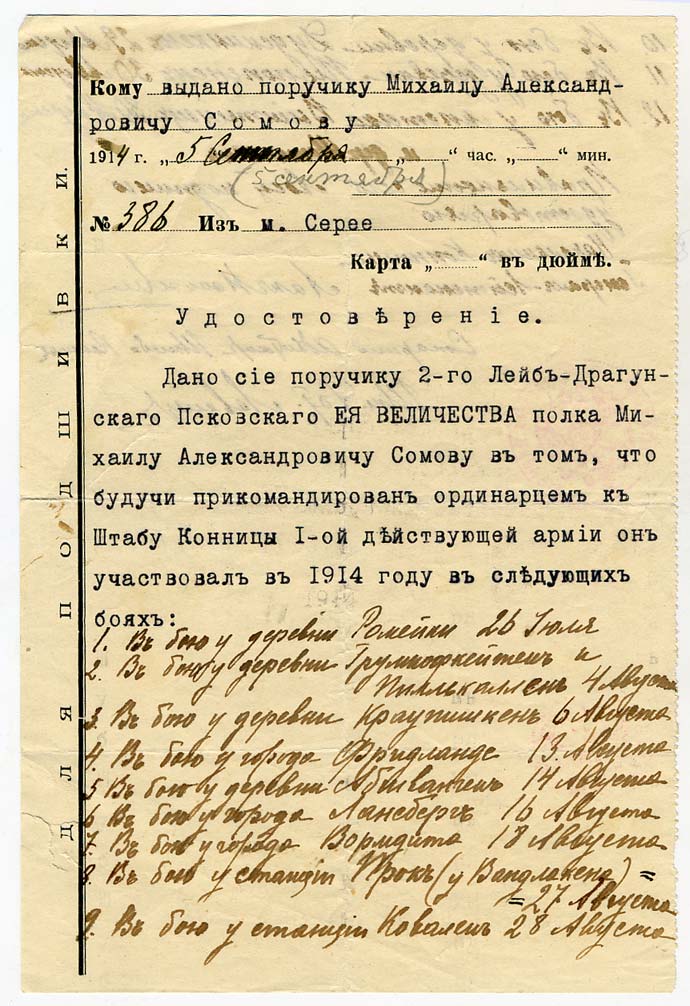 Кому выдано поручику Михаилу Александ-
ровичу Сомову
1914 г. „ 5 Сентября „ “ час. „ “ мин.
(5 сентября)
№ 386 Изъ м. Серее
Карта „ “ въ дюймѣ.
Удостовѣреніе.
Дано сіе поручику 2-го Лейбъ-Драгун-
скаго Псковскаго ЕЯ ВЕЛИЧЕСТВА полка Ми-
хаилу Александровичу Сомову въ томъ, что
будучи прикомандированъ ординарцемъ къ
Штабу Конницы I-ой дѣйствующей арміи онъ
участвовалъ въ 1914 году въ слѣдующихъ
бояхъ:
1. Въ бою у деревни Ромейки 26 Іюля
2. Въ бою у деревни и
Пиллькаллень 4 Августа
3. Въ бою у деревни Краупишкенъ 6 Августа
4. Въ бою у города Фридланде 13. Августа
5 Въ бою у деревни Абшвангенъ 14 Августа
6 Въ бою у города Лансбергъ 16 Августа
7. Въ бою у города Вормдита 18 Августа
8. Въ бою у станціи Прокъ (у Вандлакена) =
= 27 Августа
9. Въ бою у станціи Коваленъ 28 Августа
ДЛЯ ПОДШИВКИ.